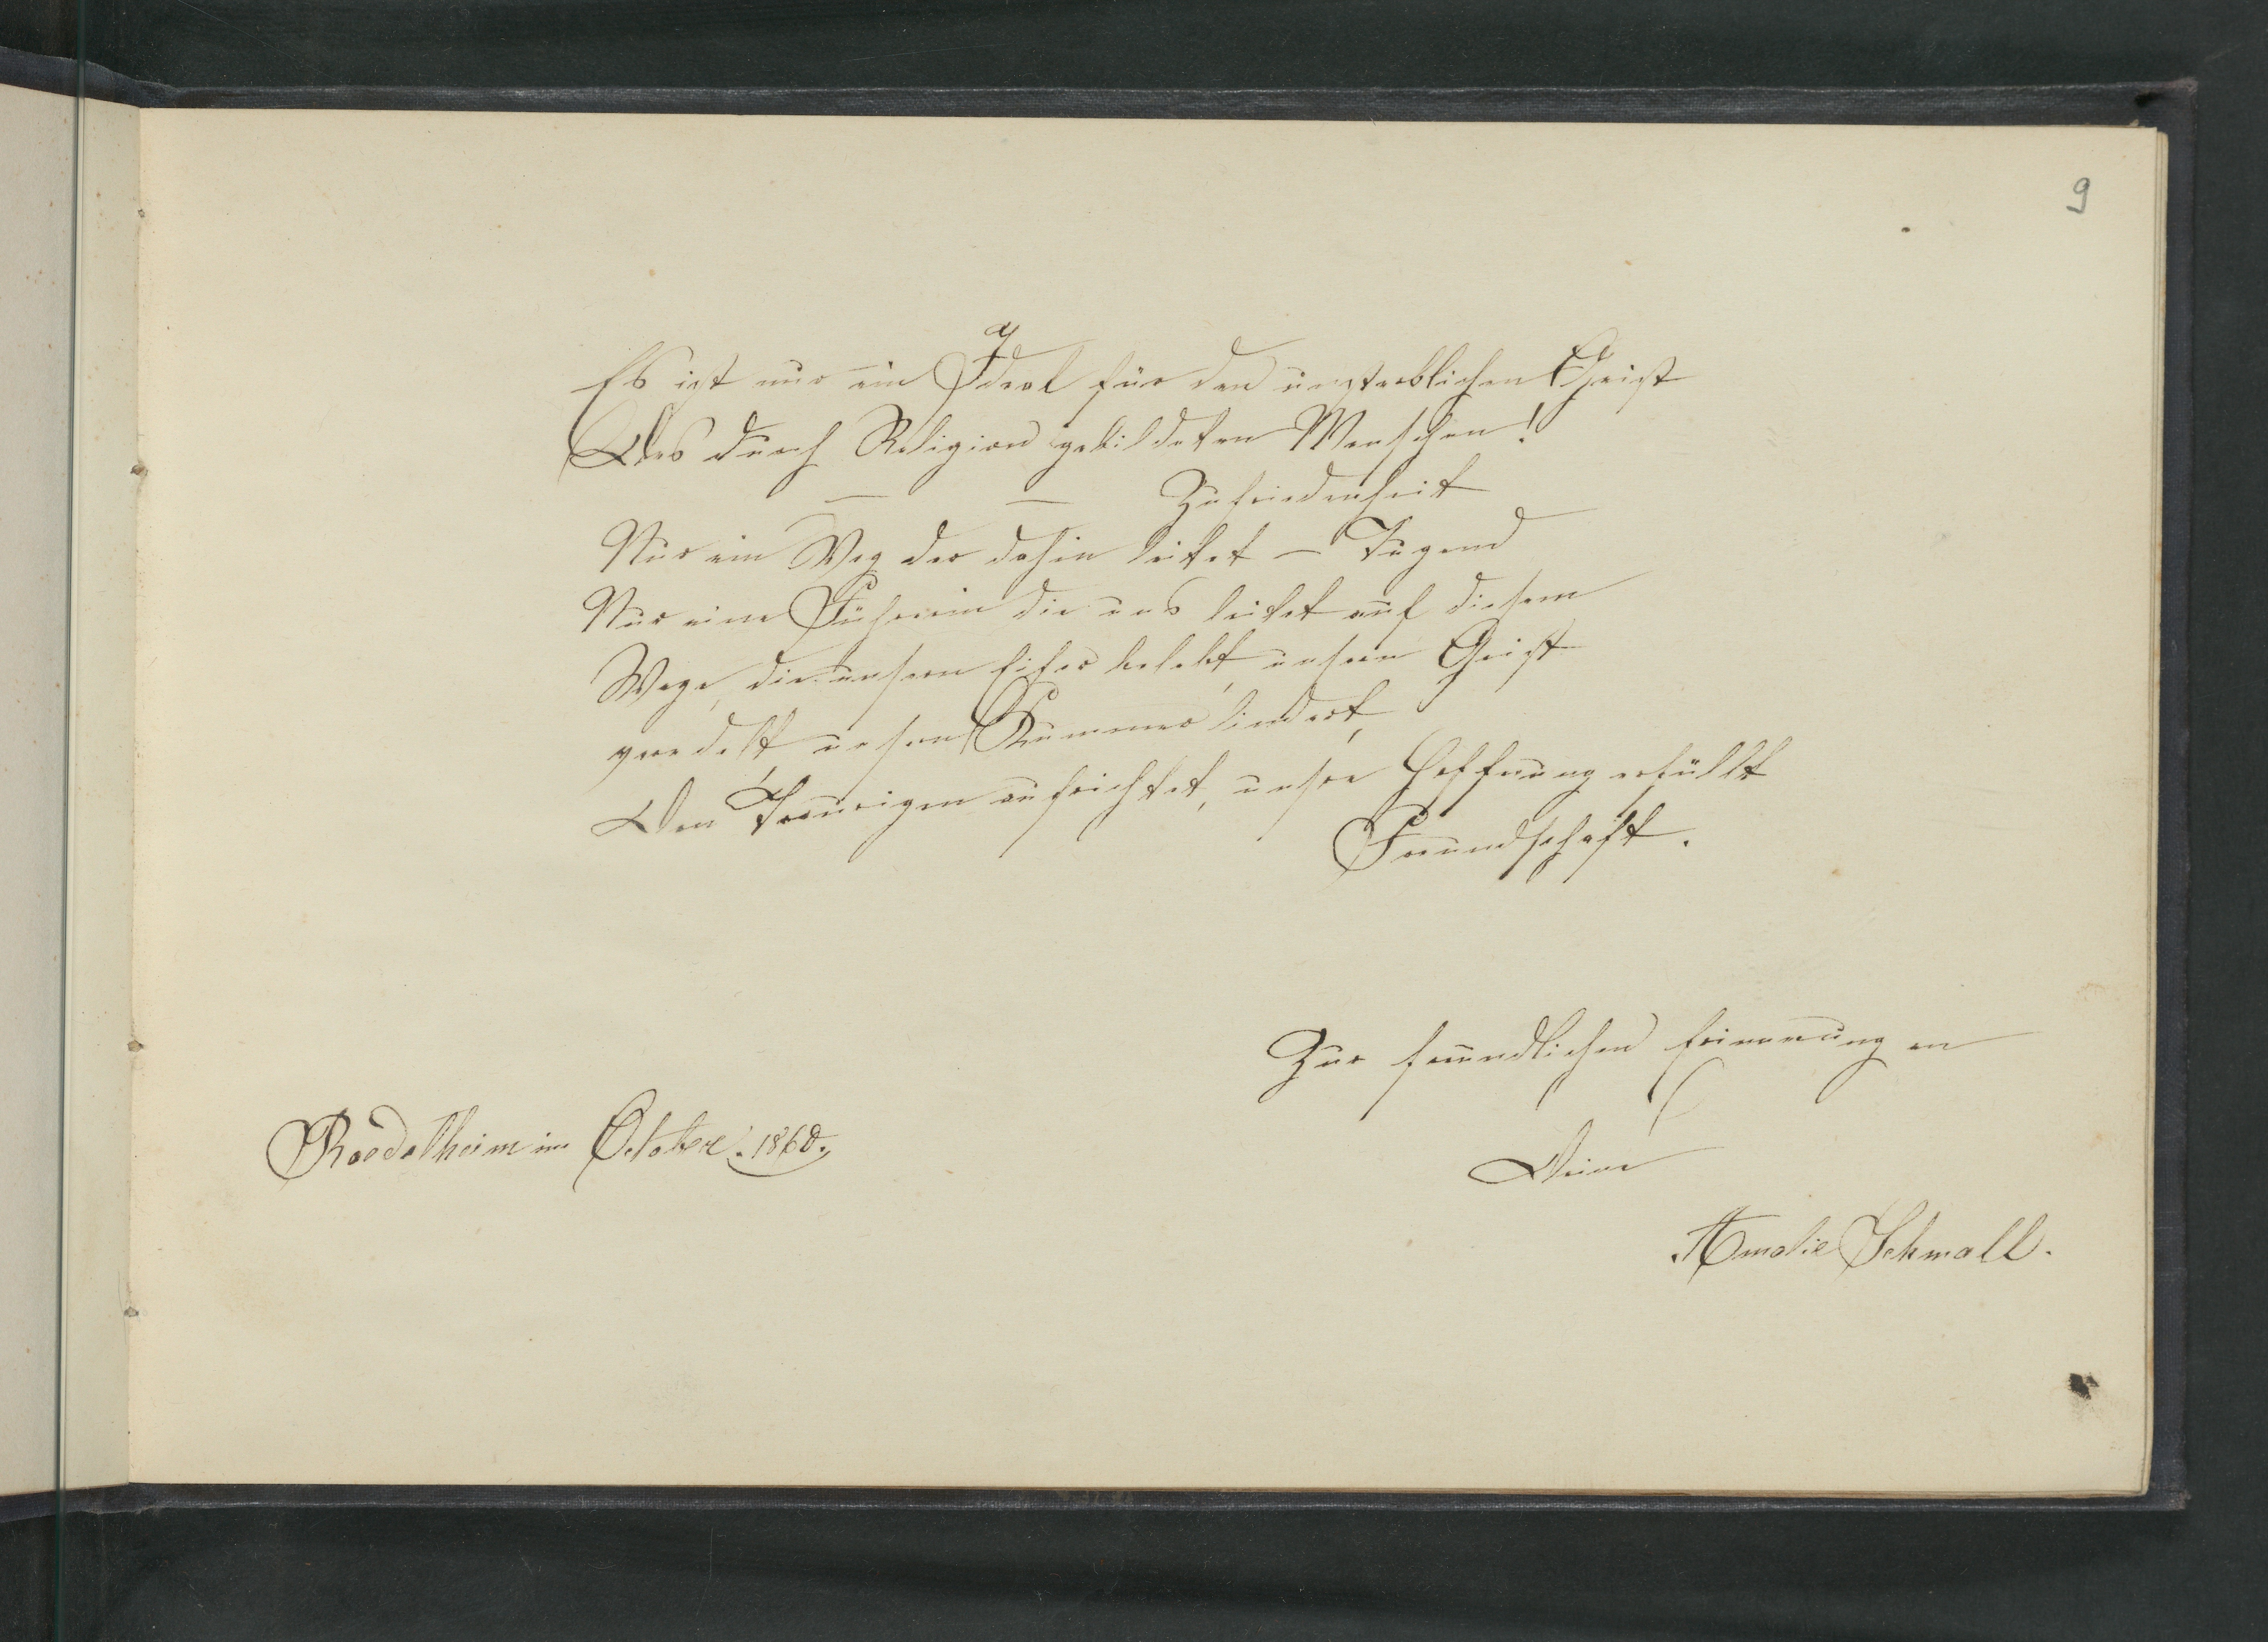 9
Es ist nur ein Ideal für den unsterblichen Geist
Des durch Religion gebildeten Menschen!
— — Zufriedenheit
Nur ein Weg der dahin leitet — Tugend
Nur eine Führerin die uns leitet auf diesem
Wege, die unsern Eifer belebt, unsern Geist
veredelt, unsern Kummer lindert,
Den Traurigen aufrichtet, unsre Hoffnung erfüllt
Freundschaft.
Zur freundlichen Erinnerung an
Roedelheim im October. 1860.
Deine
Amalie Schmall.